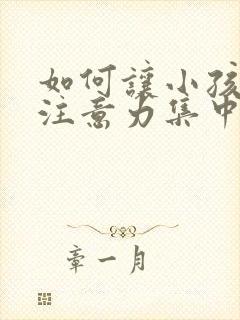 如何讓小孩
注意力集中
章一月